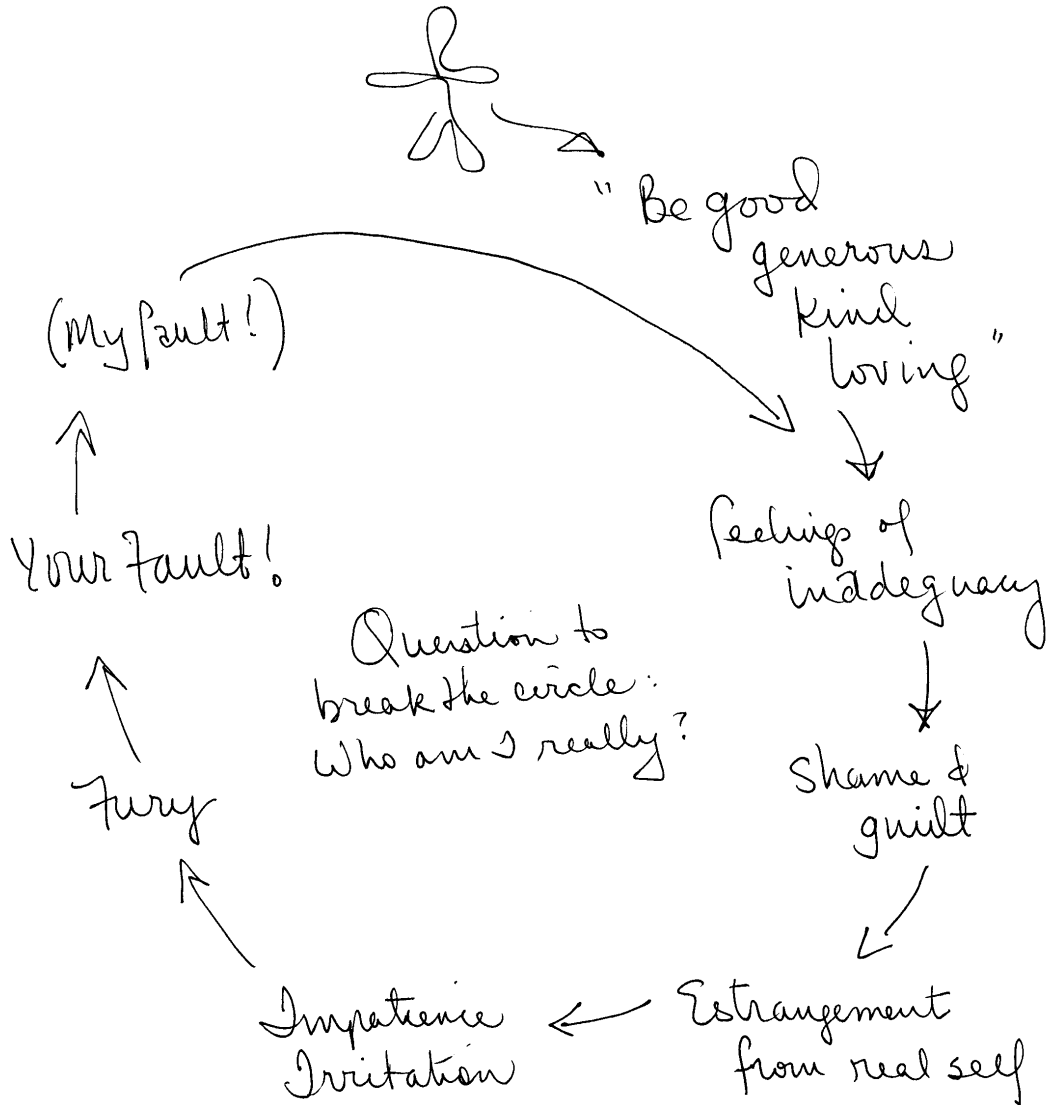 " Be good
generous
kind
loving "
feelings of
inadequacy
Shame &
guilt
Estrangement
from real self
Impatience
Irritation
Fury
Your Fault!
(My fault!)
Question to
break the circle:
Who am I really?